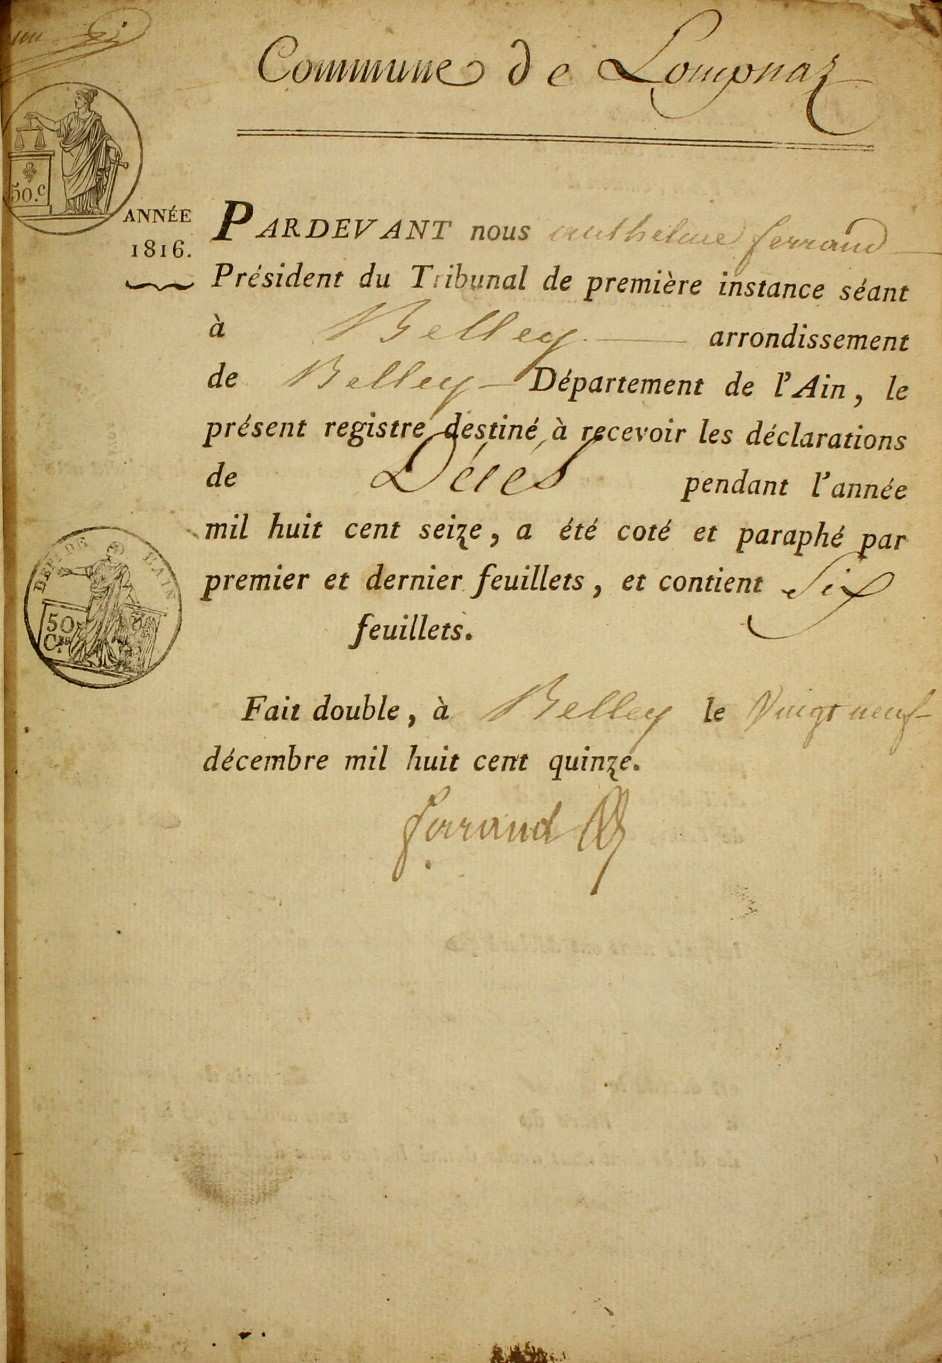 Commune de Lompnaz
50.c
ANNÉE
1816.
PARDEVANT nous anthelme ferrand
Président du Tribunal de première instance séant
à Belley arrondissement
de Belley Département de l'Ain, le
présent registre destiné à recevoir les déclarations
de Décés pendant l'année
mil huit cent seize, a été coté et paraphé par
premier et dernier feuillets, et contient Six
feuillets.
DEP. DE L'AIN.
50
C.
Fait double, à Belley le Vingt neuf
décembre mil huit cent quinze.
ferrand